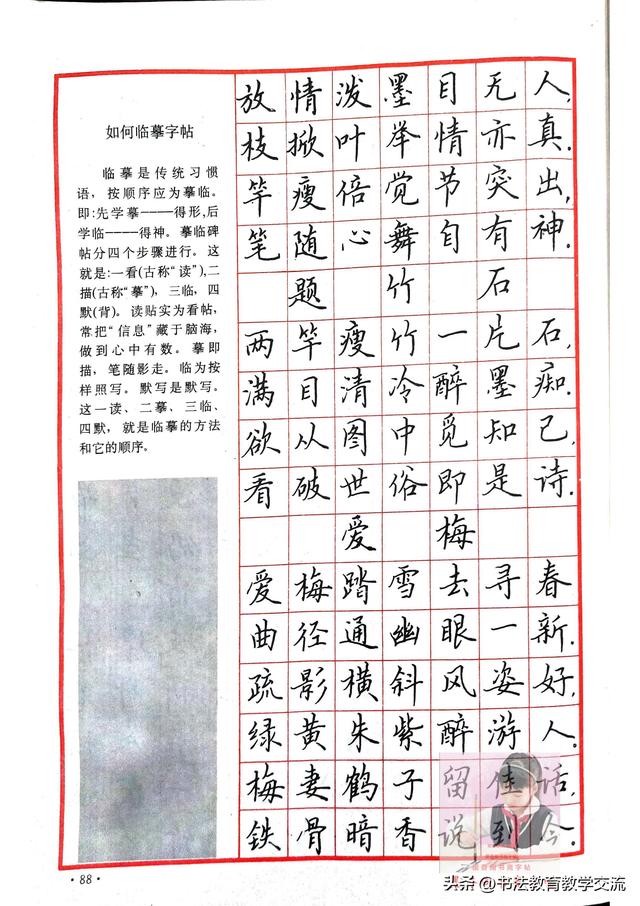 如何临摹字帖
临摹是传统习惯
语，按顺序应为摹临。
即:先学摹————得形,后
学临————得神。摹临碑
帖分四个步骤进行。这
就是:一看(古称“读”),二
描(古称“摹”)，三临，四
默(背)。读贴实为看帖，
常把“信息”藏于脑海，
做到心中有数。摹即
描，笔随影走。临为按
样照写。默写是默写。
这一读、二摹、三临、
四默，就是临摹的方法
和它的顺序。
放情泼墨目无人，
枝掀叶举情亦真.
竿瘦倍觉节突出，
笔随心舞自有神.
题竹石
两竿瘦竹一片石，
满目清冷醉墨痴.
欲从图中觅知己，
看破世俗即是诗.
爱梅
爱梅踏雪去寻春
曲径通幽眼一新.
疏影横斜风姿好，
绿黄朱紫醉游人.
梅妻鹤子留佳话，
铁骨暗香说到今.
·88·
头条@书法教育教学交流